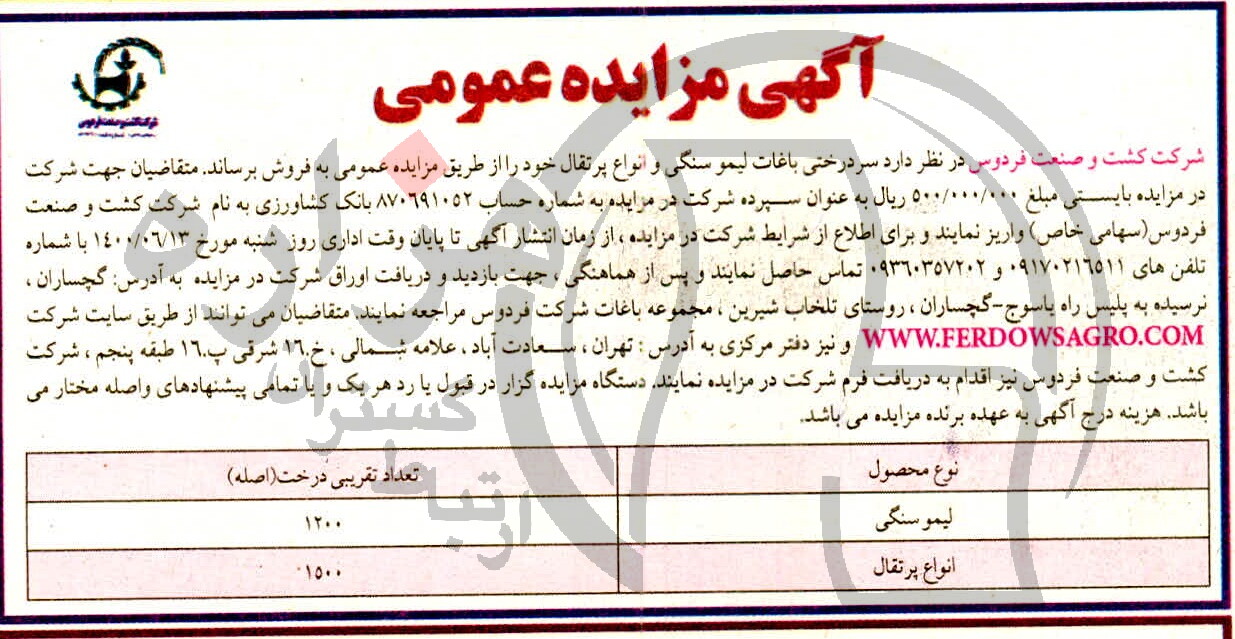 آگهی مزایده عمومی
شرکت کشت و صنعت فردوس
شرکت کشت و صنعت فردوس در نظر دارد سردرختی باغات لیمو سنگی و انواع پرتقال خود را از طریق مزایده عمومی به فروش برساند. متقاضیان جهت شرکت
در مزایده بایستی مبلغ ۵۰۰/۰۰۰/۰۰۰ ریال به عنوان سپرده شرکت در مزایده به شماره حساب ۸۷۰۶۹۱۰۵۲ بانک کشاورزی به نام شرکت کشت و صنعت
فردوس(سهامی خاص) واریز نمایند و برای اطلاع از شرایط شرکت در مزایده ، از زمان انتشار آگهی تا پایان وقت اداری روز شنبه مورخ ۱٤۰۰/۰۶/۱۳ با شماره
تلفن های ۰۹۱۷۰۲۱۶۵۱۱ و ۰۹۳۶۰۳۵۷۲۰۲ تماس حاصل نمایند و پس از هماهنگی ، جهت بازدید و دریافت اوراق شرکت در مزایده به آدرس: گچساران ،
نرسیده به پلیس راه یاسوج-گچساران ، روستای تلخاب شیرین ، مجموعه باغات شرکت فردوس مراجعه نمایند. متقاضیان می توانند از طریق سایت شرکت
WWW.FERDOWSAGRO.COM و نیز دفتر مرکزی به آدرس : تهران ، سعادت آباد ، علامه شمالی ، خ.۱۶ شرقی پ.۱۶ طبقه پنجم ، شرکت
کشت و صنعت فردوس نیز اقدام به دریافت فرم شرکت در مزایده نمایند. دستگاه مزایده گزار در قبول یا رد هر یک و یا تمامی پیشنهادهای واصله مختار می
باشد. هزینه درج آگهی به عهده برنده مزایده می باشد.
نوع محصول تعداد تقریبی درخت(اصله)
لیمو سنگی ۱۲۰۰
انواع پرتقال ۱۵۰۰
هزاره
گستران
ارتباط